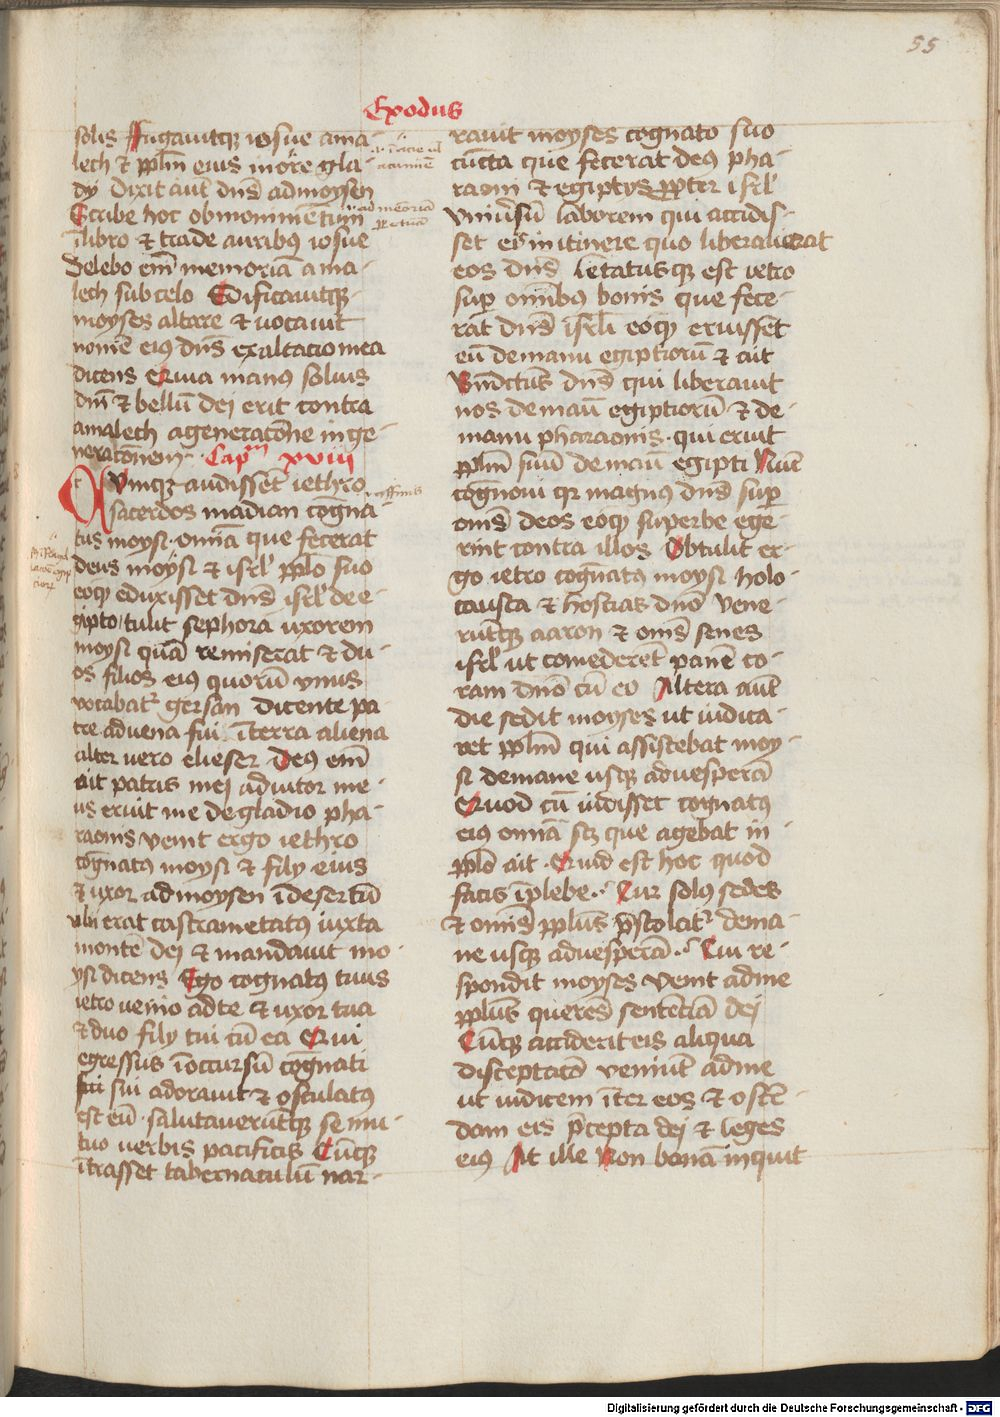 55
Exodus
solis Fugauitq₃ iosue ama-
lech & pplm̄ eius in ore gla-
dij Dixit aut̄ dn̄s ad moysen
Scribe hoc ob monimentum
ī libro & trade auribꝰ iosue
Delebo em̄ memoriā ama-
lech sub celo Edificauitq₃
moyses altare & uocauit
nomē eiꝰ dn̄s exaltacio mea
dicens Quia manꝰ soliꝰ
dn̄i & bellū dei erit contra
amalech a generatōne in ge-
neratōnem Capm̄ xviij
Qvumq₃ audisset iethro
sacerdos madian cogna-
tus moysi omīa que fecerat
deus moysi & isrl' pplo suo
eoq₃ eduxisset dn̄s isrl' de e-
gipto tulit sephora uxorem
moysi quā remiserat & du-
os filios eiꝰ quorū vnus
uocabat̉ gersan dicente pa-
tre aduena fui ī terra aliena
alter uero elieser Deꝰ em̄
ait patris mej adiutor me-
us eruit me de gladio pha-
raonis venit ergo iethro
cognatꝰ moysi & filij eius
& uxor ad moysen ī desertū
ubi erat castrametatꝰ iuxta
montē dei & mandauit mo-
ysi dicens Ego cognatꝰ tuus
ietro uenio ad te & uxor tua
& duo filij tui cū ea Qui
egressus ī occursū cognati
sui adorauit & osculatꝰ
est eū salutauerūtq₃ se mu-
tuo uerbis pacificis Cūq₃
ītrasset tabernaculū nar-
rauit moyses cognato suo
cūcta que fecerat deꝰ pha-
raoni & egiptijs ꝓpter isrl'
vniūsū laborem qui accidis-
set eis in itinere quo liberauerat
eos dn̄s letatusq₃ est ietro
sup omībꝰ bonis que fece-
rat dn̄s isrli eoq₃ eruisset
eū de manu egiptiorū & ait
Bn̄dictus dn̄s qui liberauit
nos de manū egiptiorū & de
manu pharaonis qui eruit
pplm̄ suū de manū egipti Nūc
cognoui qr magnus dn̄s sup
om̄s deos eoq₃ superbe ege-
rint contra illos Obtulit er-
go ietro cognatus moysi holo-
causta & hostias dn̄o vene-
rūtq₃ aaron & om̄s senes
isrl' ut comederet panē co-
ram dn̄o cū eo Altera aut̄
die sedit moyses ut iudica-
ret pplm̄ qui assistebat moy-
si de mane usq₃ ad vesperā
Quod cū uidisset cognatꝰ
eiꝰ omīa sc₃ que agebat in
pplo ait Quid est hoc quod
facis ī plebe Cur solꝰ sedes
& omīs pplus p̄stolat̉ de ma-
ne usq₃ ad vesperā Cui re-
spondit moyses venit ad me
pplus querēs sentenciā dej
Cūq₃ acciderit eis aliqua
disceptacō veniūt ad me
ut iudicem īter eos & ostē-
dam eis p̄cepta dej & leges
eiꝰ At ille Non bonā inquit
Digitalisierung gefördert durch die Deutsche Forschungsgemeinschaft - DFG